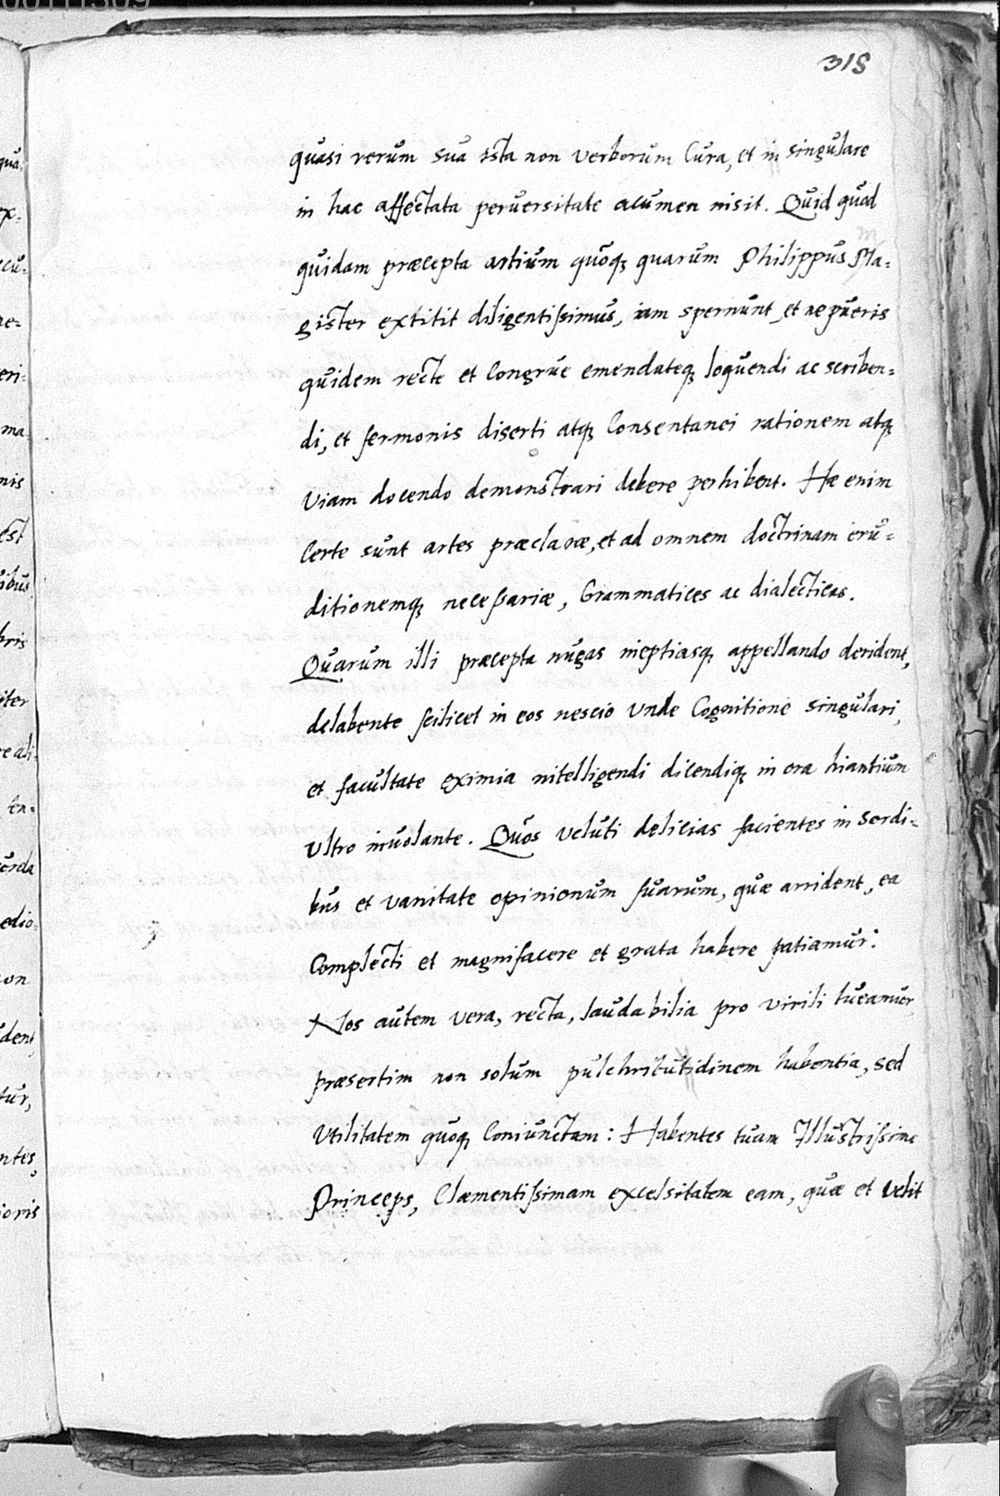 318
quasi rerum sua ista non verborum Cura, et in singulare
in hac affectata peruersitate acumen nisit. Quid quod
quidam præcepta artium quoq; quarum Philippus Ma-
gister extitit diligentissimus, iam spernunt, et ne pueris
quidem recte et Congrue emendateq; loquendi ac scriben-
di, et sermonis diserti atq; Consentanei rationem atq;
Viam docendo demonstrari debere perhibent. Hæ enim
Certe sunt artes præclaræ, et ad omnem doctrinam eru-
ditionemq; necessariæ, Grammatices ac dialectices.
Quarum illi præcepta nugas ineptiasq; appellando derident,
delabente scilicet in eos nescio unde Cognitione singulari,
et facultate eximia intelligendi dicendiq; in ora hiantium
Vltro inuolante. Quos veluti delicias facientes in sordi-
bus et vanitate opinionum suarum, quæ arrident, ea
Complecti et magnifacere et grata habere patiamur:
Nos autem vera, recta, laudabilia pro virili tueamur
præsertim non solum pulchritutidinem habentia, sed
Vtilitatem quoq; Coniunctam: Habentes tuam Illustrissime
Princeps, Clæmentissimam excelsitatem eam, quæ et velit